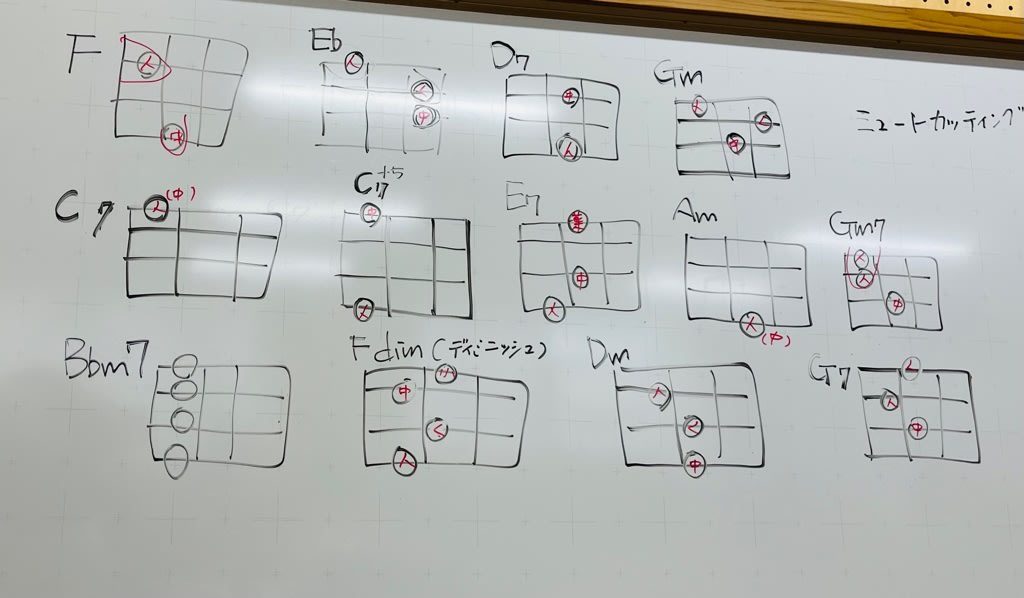 F Eb D7 Gm
人 中
人 く 中
中 人
人 く 中
ミュートカッティング
C7 C7+5 E7 Am Gm7
人 (中)
中 人
中 人
人 (中)
く 人 中
Bbm7 Fdim (ディミニッシュ) Dm G7
中 く 人
人 く 中
く 人 中